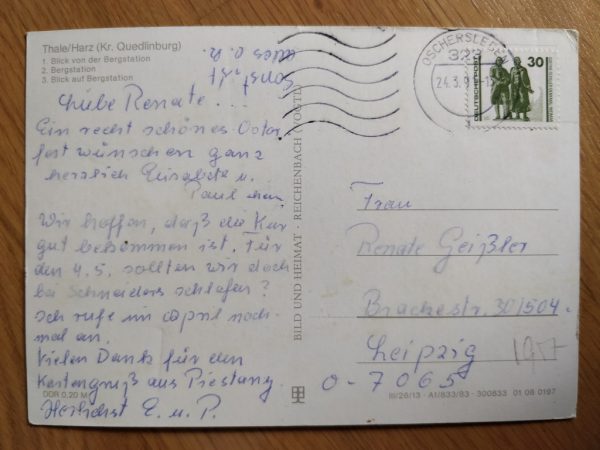 Thale/Harz (Kr. Quedlinburg)
1. Blick von der Bergstation
2. Bergstation
3. Blick auf Bergstation
Sonst ist
alles o. k.
Liebe Renate...
Ein recht schönes Oster
fest wünschen ganz
herzlich Elisabeth u.
Paul
Wir hoffen, daß die Kur
gut bekommen ist. Für
den 4.5. sollten wir doch
bei Schneiders schlafen?
Ich rufe im April noch-
mal an.
Vielen Dank für den
Kartengruß aus Piestany.
Herzlichst E. u. P.
DDR 0,20 M
BILD UND HEIMAT · REICHENBACH (VOGTL)
OSCHERSLEBEN
24.3.9
30
DEUTSCHE POST
Frau
Renate Geißler
Brackestr. 30/504
Leipzig
O-7065
III/26/13 · A1/833/83 · 300833 01 08 0197